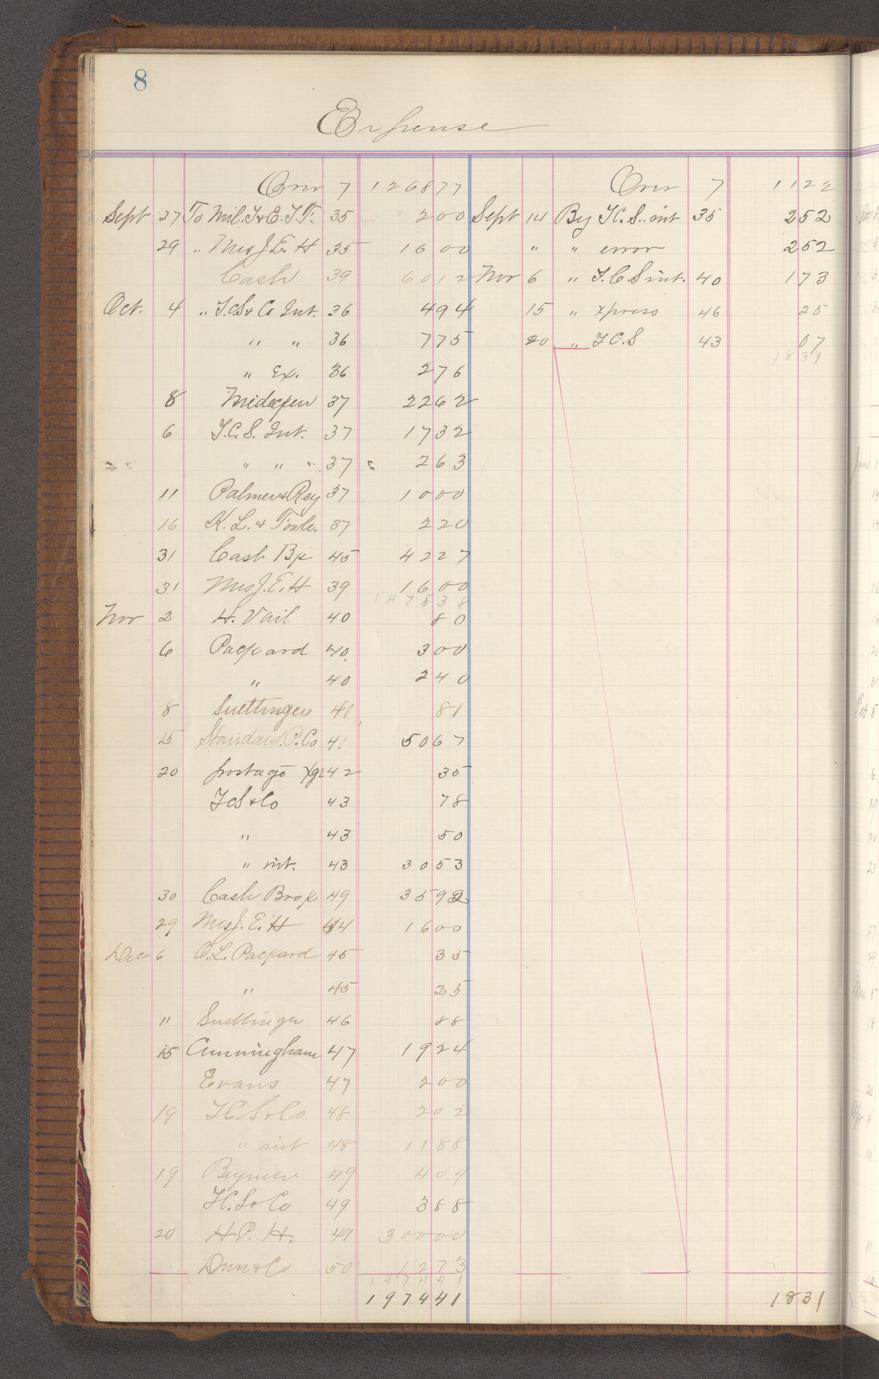 8
Expense
Over 7 1268 77 Over 7 11 22
Sept 27 To Mil. & 35 2 00 Sept 14 By int 35 2 52
29 " Mrs J. E. H 35 16 00 " " error 2 52
Cash 39 60 12 Nov 6 " int. 40 1 73
Oct. 4 " & Co Int. 36 4 94 15 " Xpress 46 25
" " 36 7 75 20 " 43 07
18 31
" Ex. 36 2 76
8 Midexpen 37 22 62
6 Int. 37 17 32
" " " 37 2 63
11 Palmer & Rey 37 10 00
16 K. L. & 37 2 20
31 Cash Bk 45 42 27
31 Mrs J. E. H 39 16 00
1475 38
Nov 2 H. Vail 40 80
6 Packard 40 3 00
" 40 2 40
8 Snettinger 41 81
15 Standard O. Co 41 50 67
20 postage 42 35
& Co 43 78
" 43 50
" int. 43 30 53
30 Cash Book 49 35 92
29 Mrs J. E. H 44 16 00
Dec 6 O. L. Packard 45 35
" 45 25
" Snettinger 46 88
15 Cunningham 47 19 24
Evans 47 2 00
19 & Co 48 2 02
" int 48 11 88
19 49 4 04
& Co 49 3 88
20 H. P. H. 49 300 00
Dun & Co 50 12 73
1974 41
1974 41 18 31